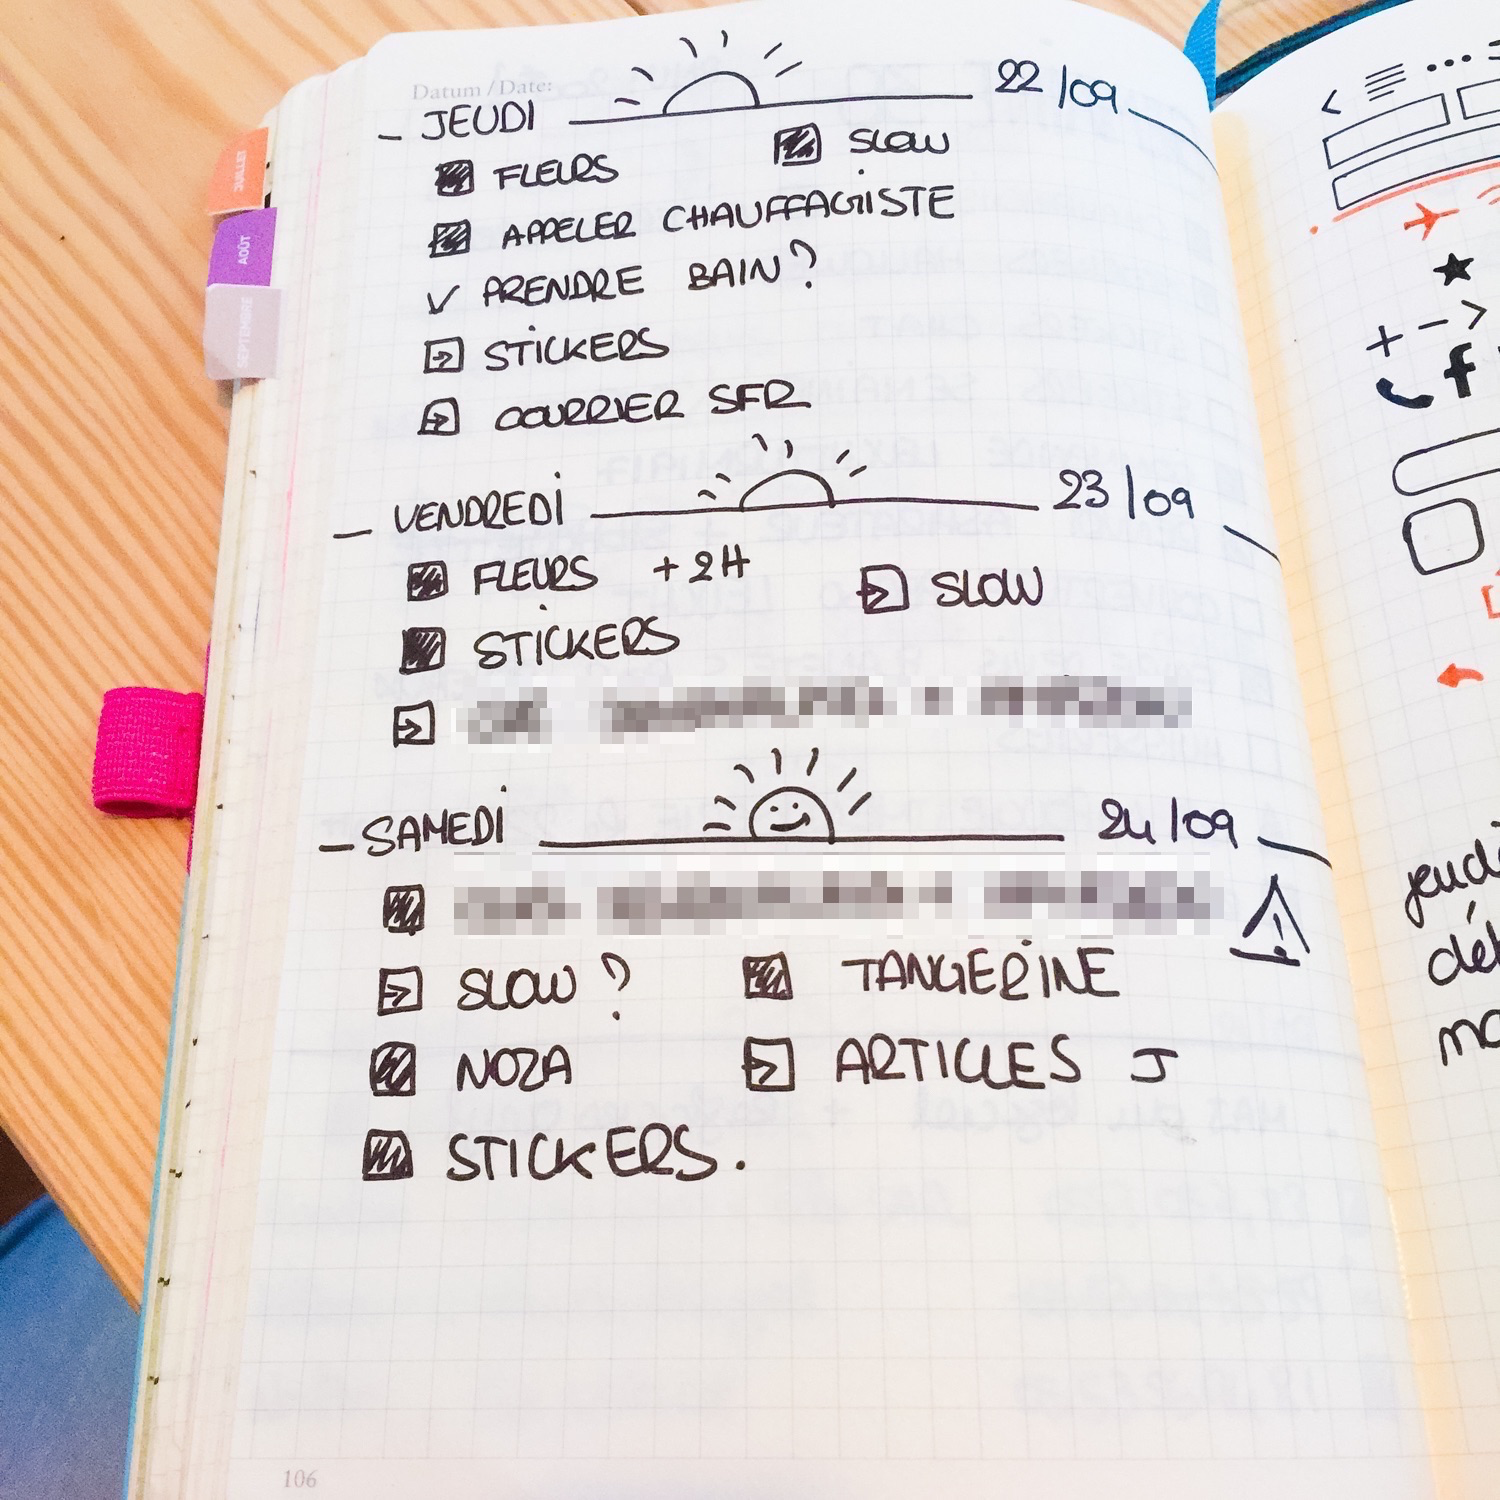 Datum / Date:
JEUDI 22/09
FLEURS SLOW
APPELER CHAUFFAGISTE
PRENDRE BAIN?
STICKERS
COURRIER SFR
VENDREDI 23/09
FLEURS +2H SLOW
STICKERS
SAMEDI 24/09
SLOW ? TANGERINE
NOZA ARTICLES J
STICKERS.
106
JUILLET
AOÛT
SEPTEMBRE
f
jeudi
dé